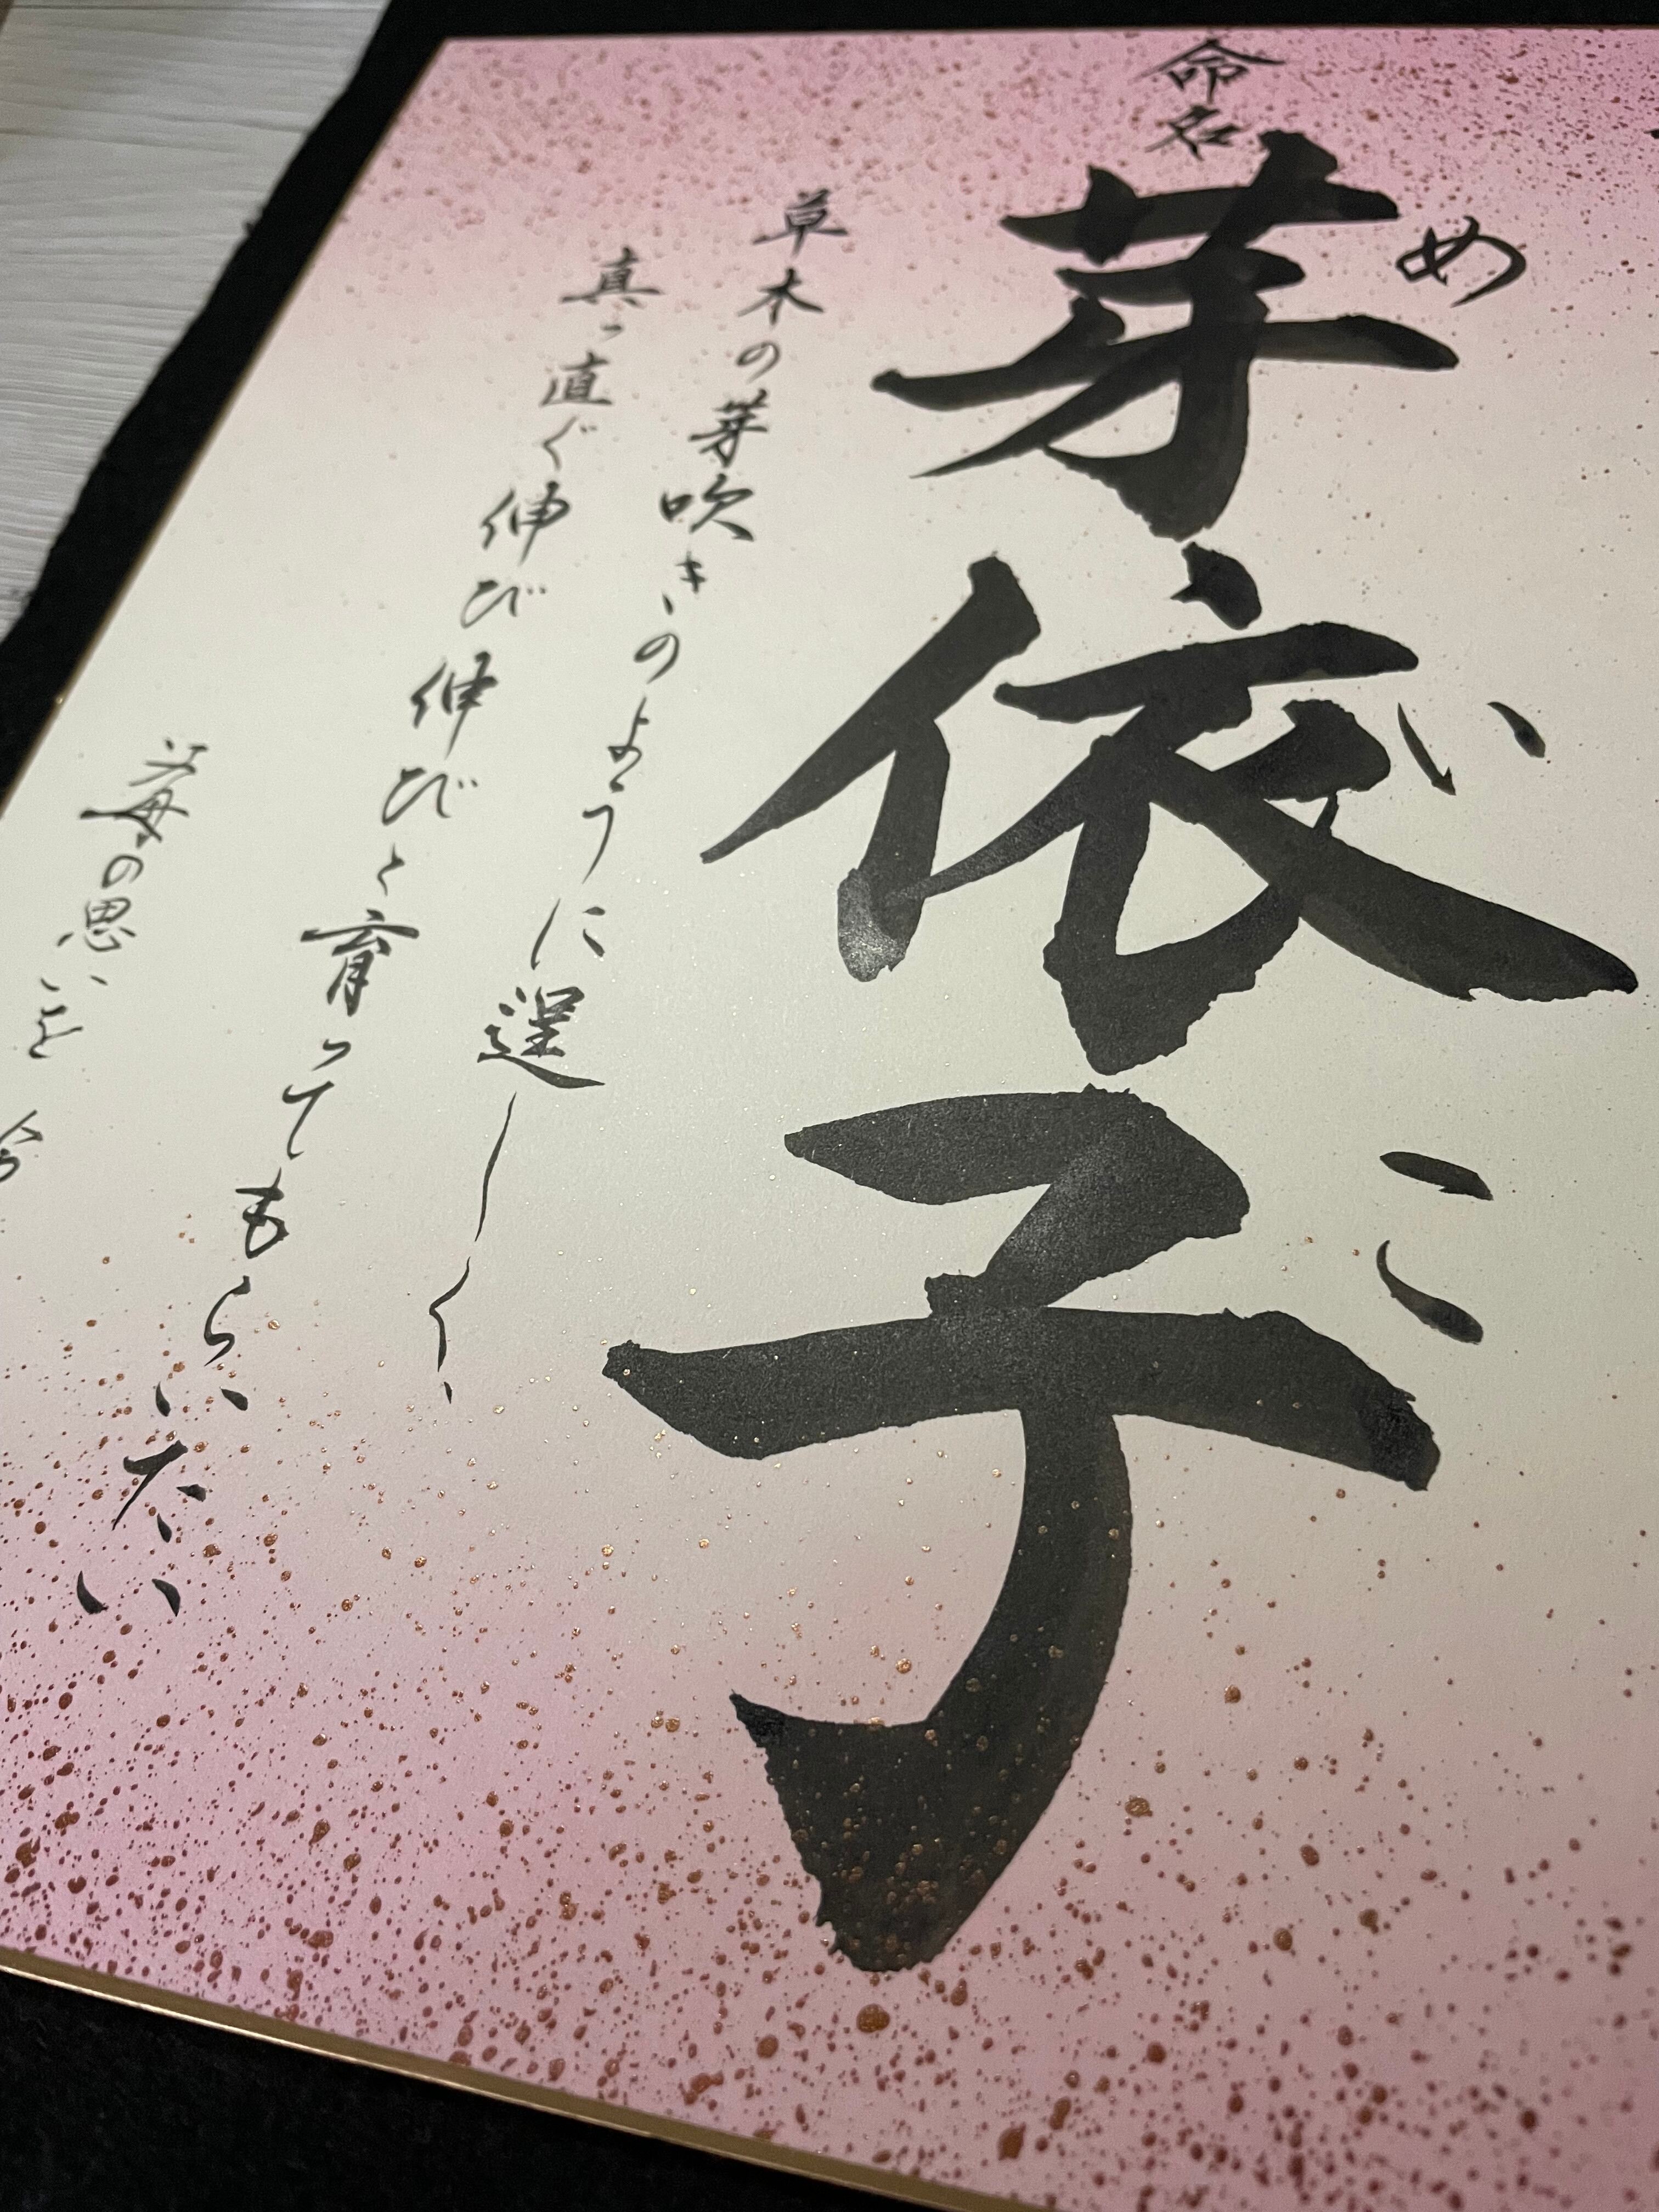 命名
芽依子
めいこ
草木の芽吹きのように逞しく
真っ直ぐ伸び伸びと育ってもらいたい
苺の思いを